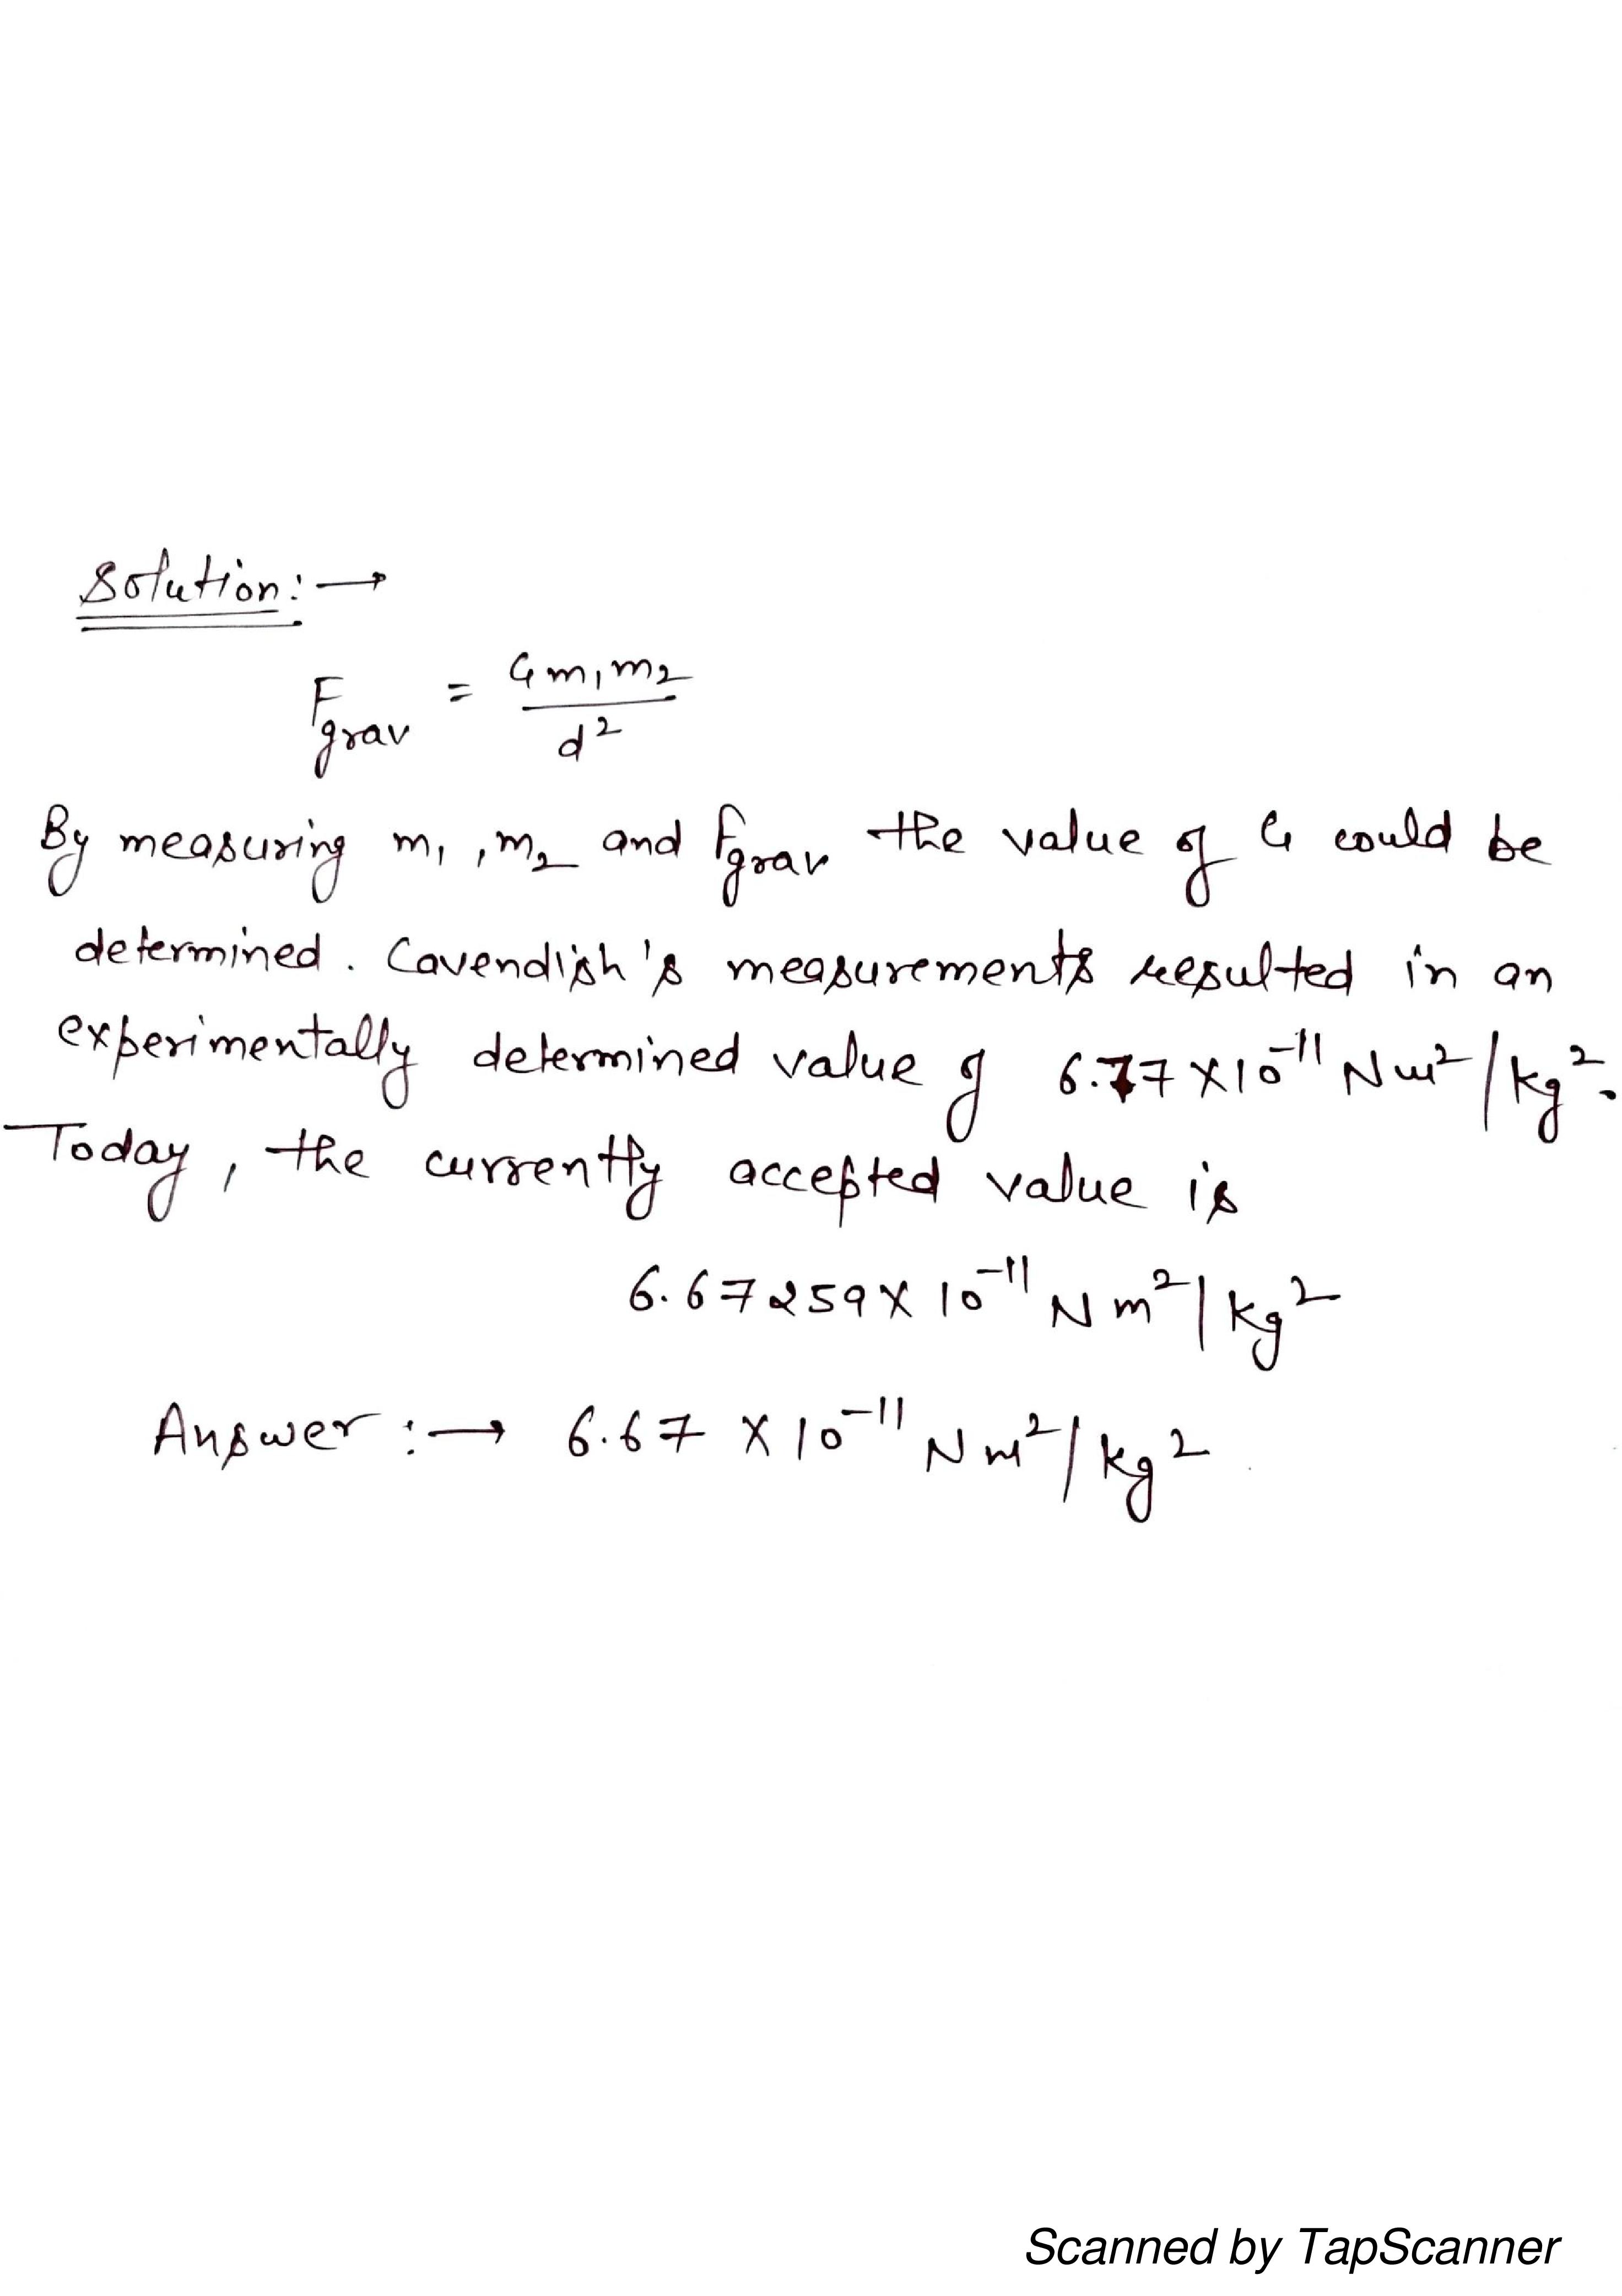 Solution:→
F_grav = Gm₁m₂/d²
By measuring m₁, m₂ and F_grav the value of G could be
determined. Cavendish's measurements resulted in an
experimentally determined value of 6.77 × 10⁻¹¹ Nm²/kg².
Today, the currently accepted value is
6.67259 × 10⁻¹¹ Nm²/kg²
Answer :→ 6.67 × 10⁻¹¹ Nm²/kg²
Scanned by TapScanner